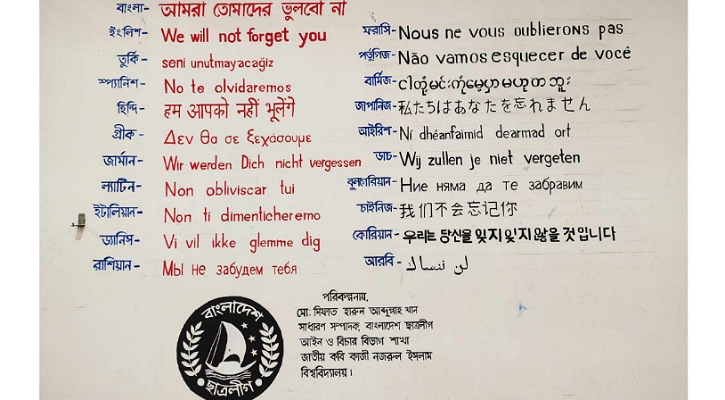 বাংলা- আমরা তোমাদের ভুলবো না
ইংলিশ- We will not forget you
তুর্কি- seni unutmayacağiz
স্প্যানিশ- No te olvidaremos
হিন্দি- हम आपको नहीं भूलेंगे
গ্রীক- Δεν θα σε ξεχάσουμε
জার্মান- Wir werden Dich nicht vergessen
ল্যাটিন- Non obliviscar tui
ইটালিয়ান- Non ti dimenticheremo
ড্যানিস- Vi vil ikke glemme dig
রাশিয়ান- Мы не забудем тебя
ফরাসি- Nous ne vous oublierons pas
পর্তুগিজ- Não vamos esquecer de você
বার্মিজ-
জাপানিজ- 私たちはあなたを忘れません
আইরিশ- Ní dhéanfaimid dearmad ort
ডাচ- Wij zullen je niet vergeten
বুলগেরিয়ান- Ние няма да те забравим
চাইনিজ- 我们不会忘记你
কোরিয়ান- 우리는 당신을 잊지 잊지 않을 것입니다
আরবি- لن ننساك
বাংলাদেশ
ছাত্রলীগ
পরিকল্পনায়,
মো: হারুন আব্দুল্লাহ খান
সাধারণ সম্পাদক, বাংলাদেশ ছাত্রলীগ
আইন ও বিচার বিভাগ শাখা
জাতীয় কবি কাজী নজরুল ইসলাম
বিশ্ববিদ্যালয়।